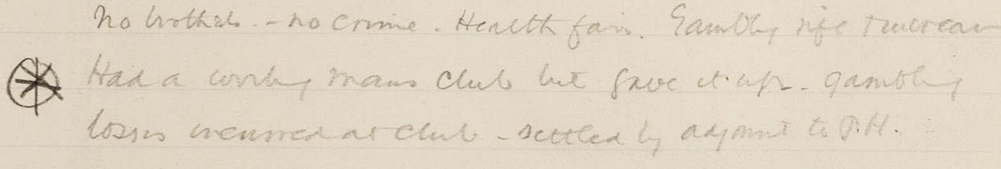 No brothels. - no crime. Health fair. Gambling rife & increas
Had a working mans club but gave it up - gambling
losses incurred at club - settled by adjmt to P.H.